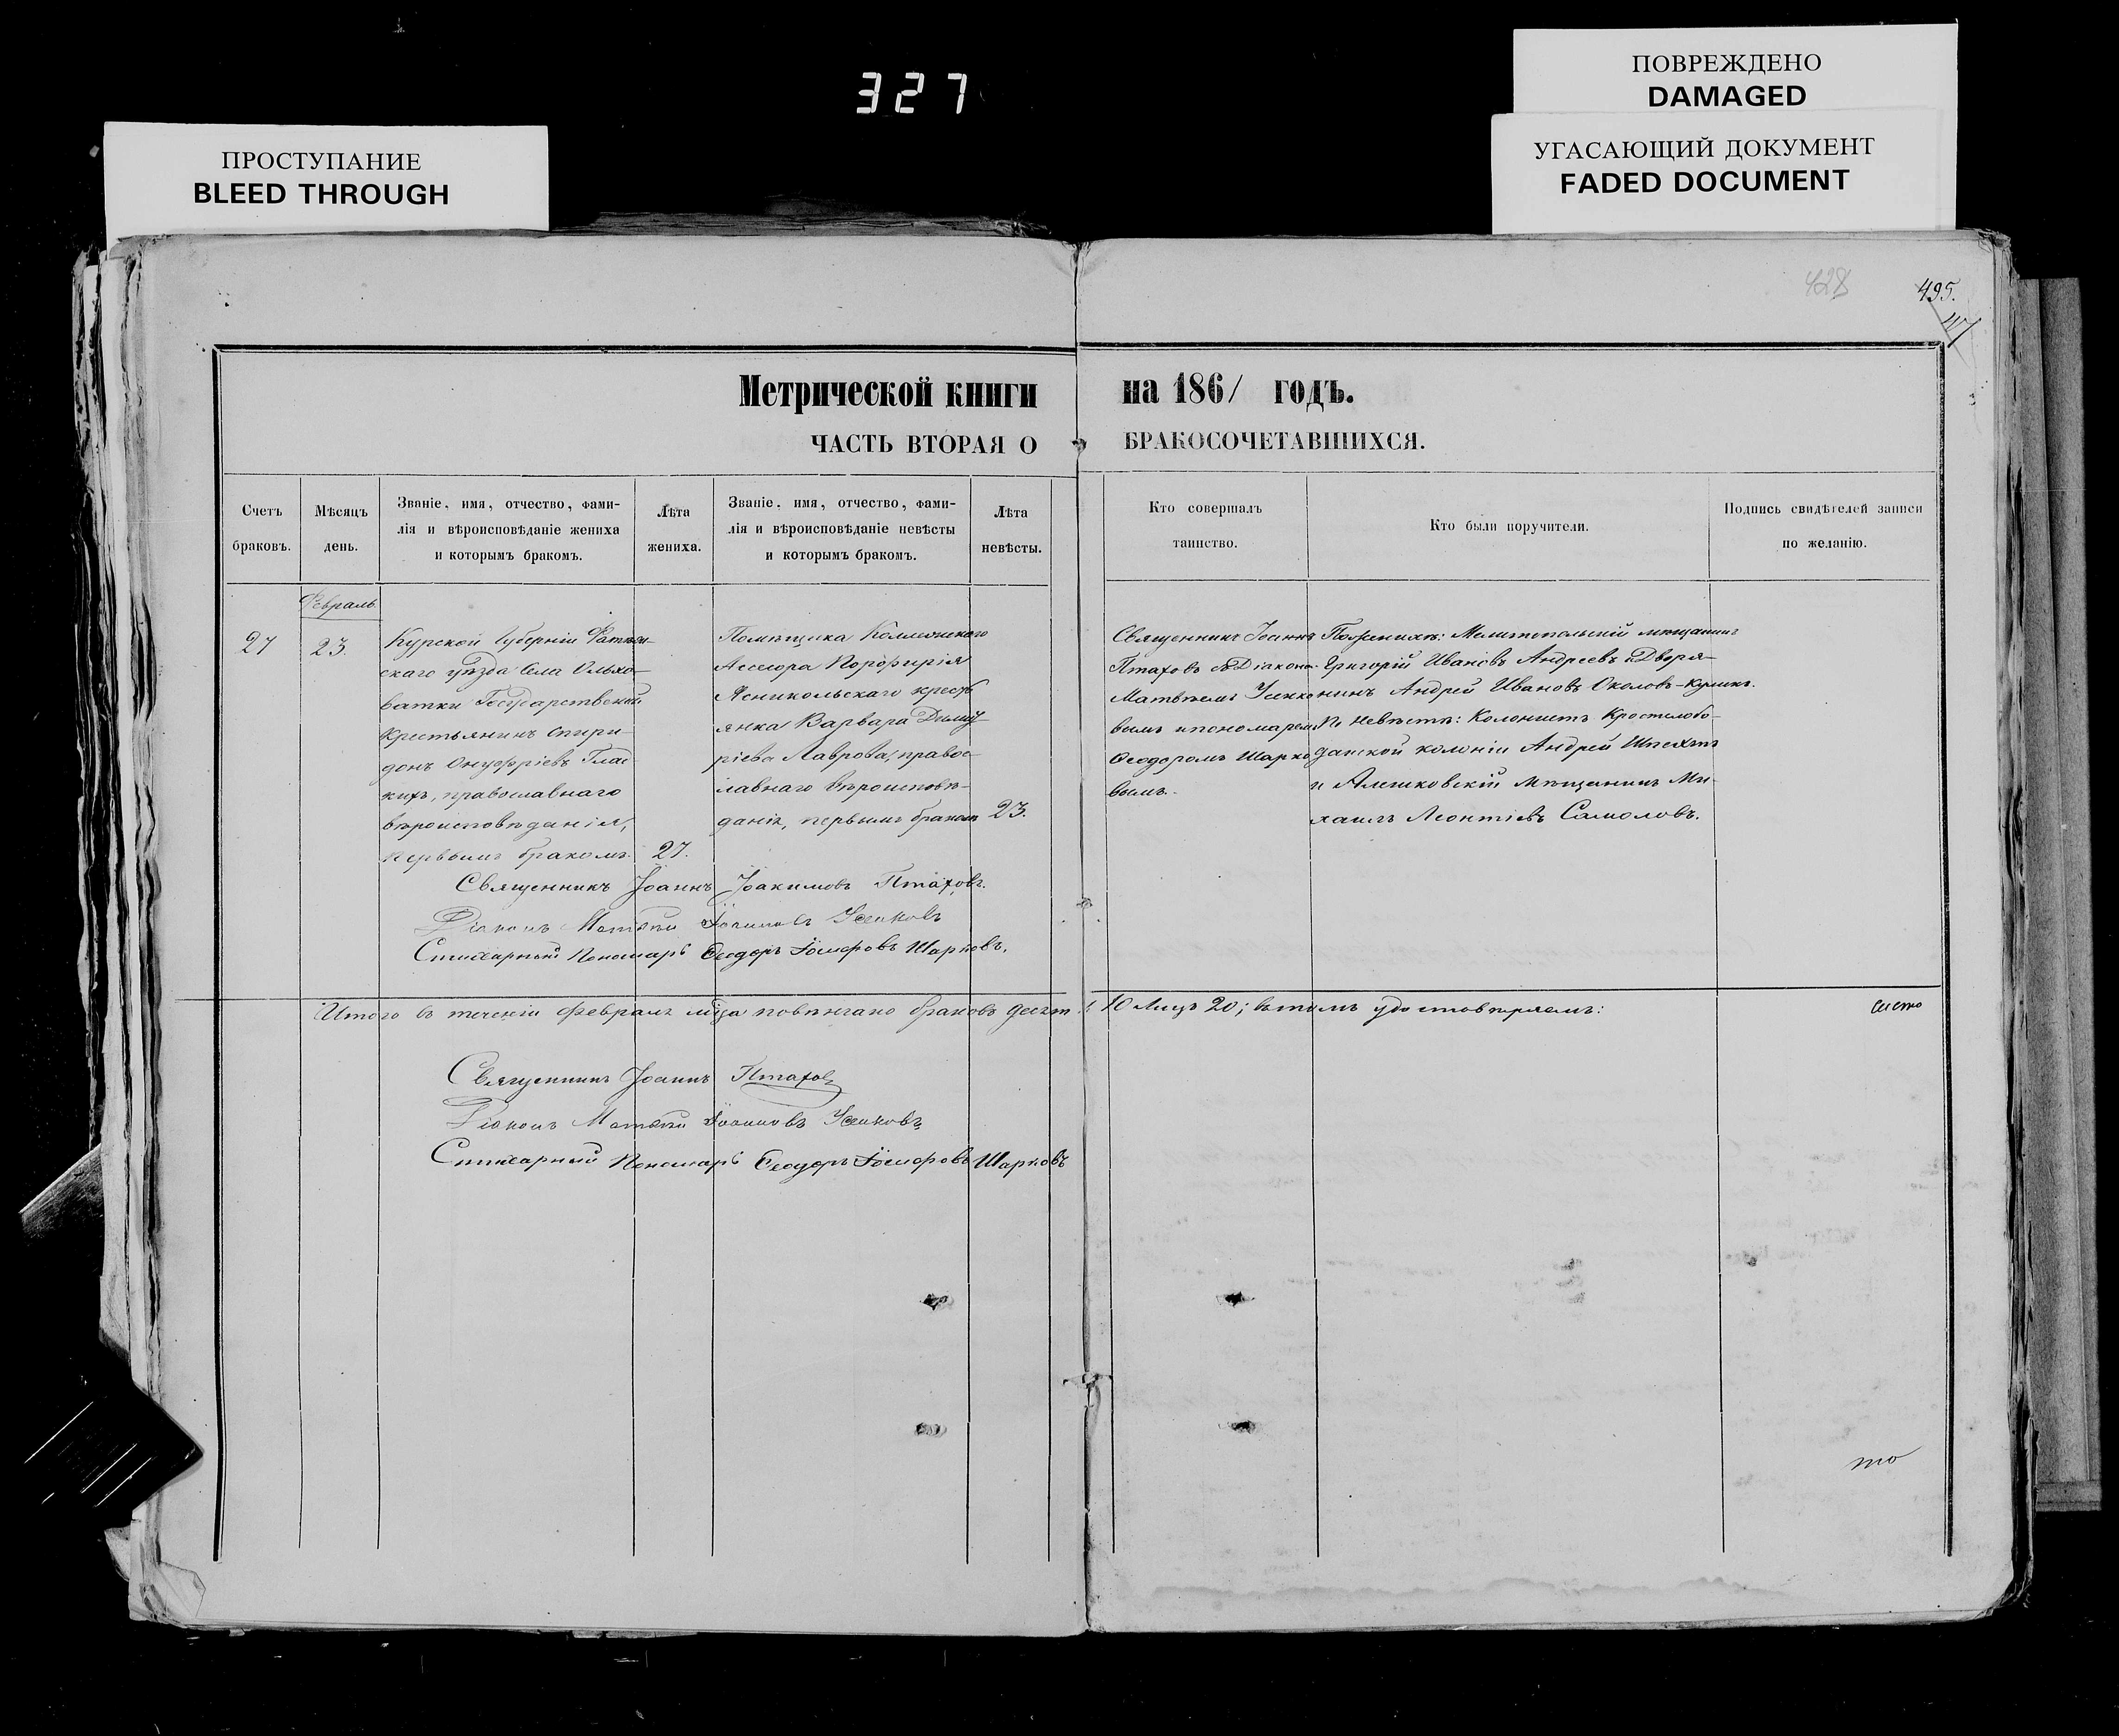 327
ПОВРЕЖДЕНО
DAMAGED
УГАСАЮЩИЙ ДОКУМЕНТ
FADED DOCUMENT
ПРОСТУПАНИЕ
BLEED THROUGH
428
495.
Метрической книги на 1861 годъ.
ЧАСТЬ ВТОРАЯ О БРАКОСОЧЕТАВШИХСЯ.
Счетъ
браковъ.
Мѣсяцъ
день.
Званіе, имя, отчество, фами-
лія и вѣроисповѣданіе жениха
и которымъ бракомъ.
Лѣта
жениха.
Званіе, имя, отчество, фами-
лія и вѣроисповѣданіе невѣсты
и которымъ бракомъ.
Лѣта
невѣсты.
Кто совершалъ
таинство.
Кто были поручители.
Подпись свидѣтелей записи
по желанію.
Февраль
27
23.
Курской Губерніи
скаго уѣзда Села Ольхо-
ватки Государственный
Крестьянинъ Спири-
донъ Онуфріевъ Глад
кихъ, православнаго
вѣроисповѣданія,
первымъ бракомъ.
27.
Помѣщика Коллежскаго
Асессора Порфирія
Ясникольскаго кресть
янка Варвара Димит
ріева Лаврова, правос-
лавнаго вѣроисповѣ-
данія, первымъ бракомъ
23.
Священникъ Іоаннъ
Птаховъ съ Діакономъ
Матвѣемъ Усенко
вымъ и пономаремъ
Ѳеодоромъ Шарко
вымъ.
По женихѣ: Мелитопольскій мѣщанинъ
Григорій Ивановъ Андреевъ и Дворя-
нинъ Андрей Ивановъ Околовъ-Куликъ.
По невѣстѣ: Колонистъ
колоніи Андрей Шпехтъ
и Алешковскій Мѣщанинъ Ми-
хаилъ Леонтіевъ
Священникъ Іоаннъ Іоакимовъ Птаховъ.
Діаконъ Матвѣй Іоанновъ Усенковъ
Стихарный Пономарь Ѳеодоръ Іосифовъ Шарковъ.
Итого въ теченіи февраля мѣсца повѣнчано браковъ десять 10 Лицъ 20; въ томъ удостовѣряемъ:
Священникъ Іоаннъ Птаховъ
Діаконъ Матвѣй Іоанновъ Усенковъ
Стихарный Пономарь Ѳеодоръ Іосифовъ Шарковъ
то